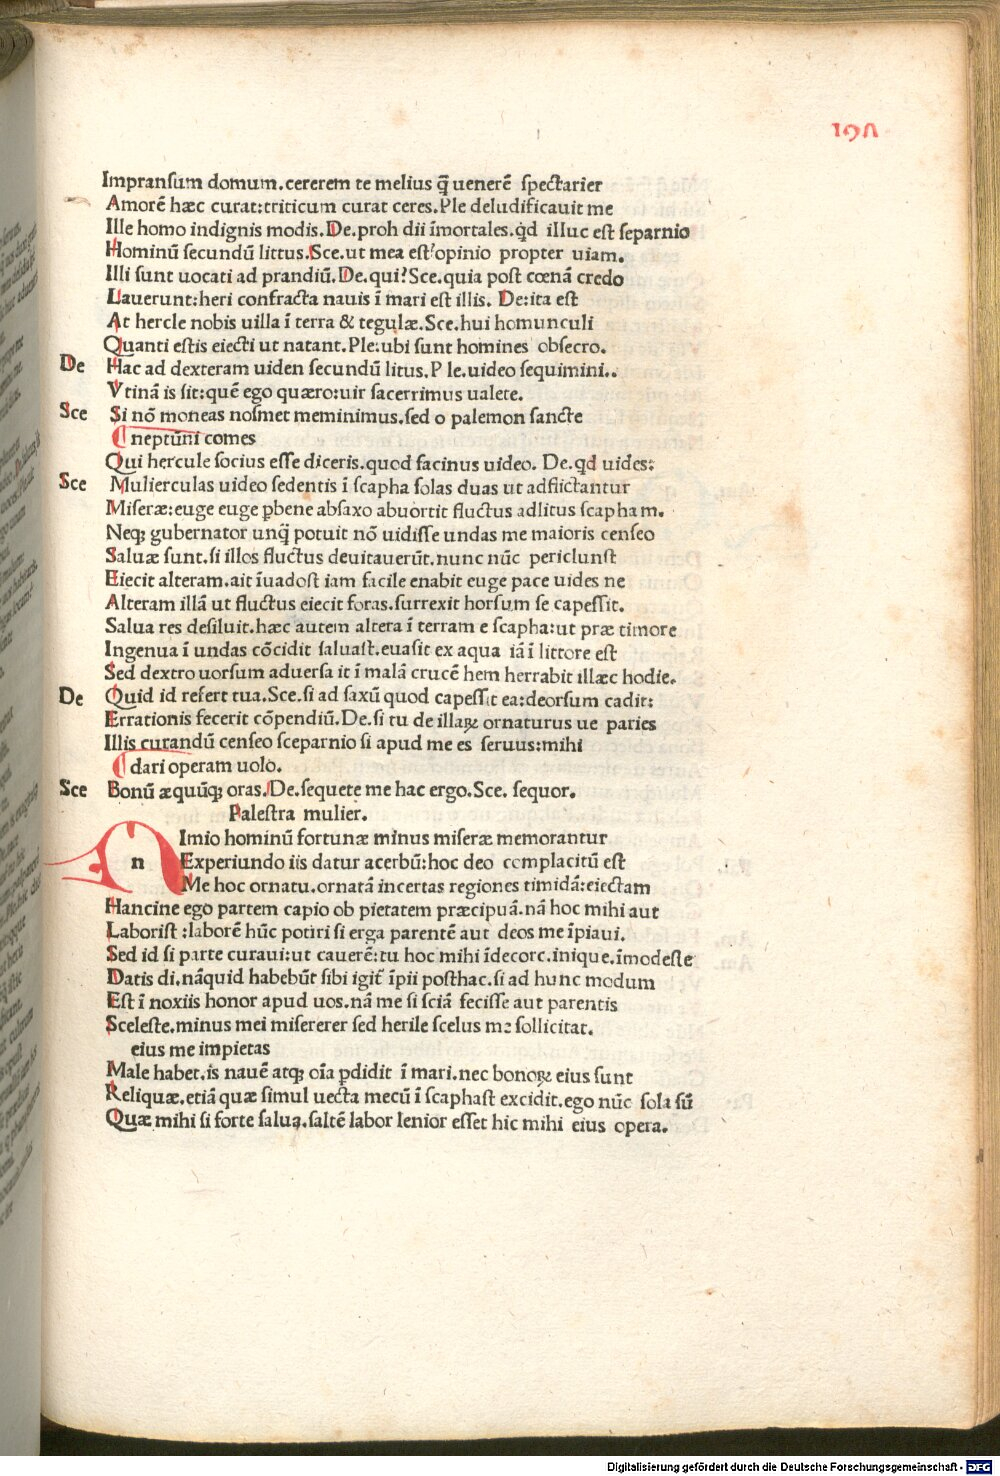 197
Impransum domum.cererem te melius q̄ uenerē spectarier
Amorē hæc curat:triticum curat ceres.Ple deludificauit me
Ille homo indignis modis.De.proh dii īmortales.qd illuc est separnio
Hominū secundū littus.Sce.ut mea est opinio propter uiam.
Illi sunt uocati ad prandiū.De.qui?Sce.quia post cœnā credo
Lauerunt:heri confracta nauis ī mari est illis. De:ita est
At hercle nobis uilla ī terra & tegulæ.Sce.hui homunculi
Quanti estis eiecti ut natant.Ple:ubi sunt homines obsecro.
De Hac ad dexteram uiden secundū litus.P le.uideo sequimini..
Vtinā is sit:quē ego quæro:uir sacerrimus ualete.
Sce Si nō moneas nosmet meminimus.sed o palemon sancte
neptūni comes
Qui hercule socius esse diceris.quod facinus uideo. De.qd uides:
Sce Mulierculas uideo sedentis ī scapha solas duas ut adflictantur
Miseræ:euge euge ꝑbene absaxo abuortit fluctus adlitus scapham.
Neqꝫ gubernator unq̄ potuit nō uidisse undas me maioris censeo
Saluæ sunt.si illos fluctus deuitauerūt.nunc nūc periclunst
Eiecit alteram.ait īuadost iam facile enabit euge pace uides ne
Alteram illā ut fluctus eiecit foras.surrexit horsum se capessit.
Salua res desiluit.hæc autem altera ī terram e scapha:ut præ timore
Ingenua ī undas cōcidit saluast.euasit ex aqua iā ī littore est
Sed dextro uorsum aduersa it ī malā crucē hem herrabit illæc hodie.
De Quid id refert tua.Sce.si ad saxū quod capessit ea:deorsum cadit:
Errationis fecerit cōpendiū.De.si tu de illaꝝ ornaturus ue paries
Illis curandū censeo sceparnio si apud me es seruus:mihi
dari operam uolo.
Sce Bonū æquūqꝫ oras.De.sequere me hac ergo.Sce. sequor.
Palestra mulier.
n Imio hominū fortunæ minus miseræ memorantur
Experiundo iis datur acerbū:hoc deo complacitū est
Me hoc ornatu.ornatā incertas regiones timidā:eiectam
Hancine ego partem capio ob pietatem præcipuā.nā hoc mihi aut
Laborist :laborē hūc potiri si erga parentē aut deos me īpiaui.
Sed id si parte curaui:ut cauerē:tu hoc mihi īdecorc.inique.īmodeste
Datis di.nāquid habebūt sibi igiť īpii posthac.si ad hunc modum
Est ī noxiis honor apud uos.nā me si sciā fecisse aut parentis
Sceleste.minus mei misererer sed herile scelus me sollicitat.
eius me impietas
Male habet.is nauē atqꝫ oīa ꝑdidit ī mari.nec bonoꝝ eius sunt
Reliquæ.etiā quæ simul uecta mecū ī scaphast excidit.ego nūc sola sū
Quæ mihi si forte salua.saltē labor lenior esset hic mihi eius opera.
Digitalisierung gefördert durch die Deutsche Forschungsgemeinschaft - DFG